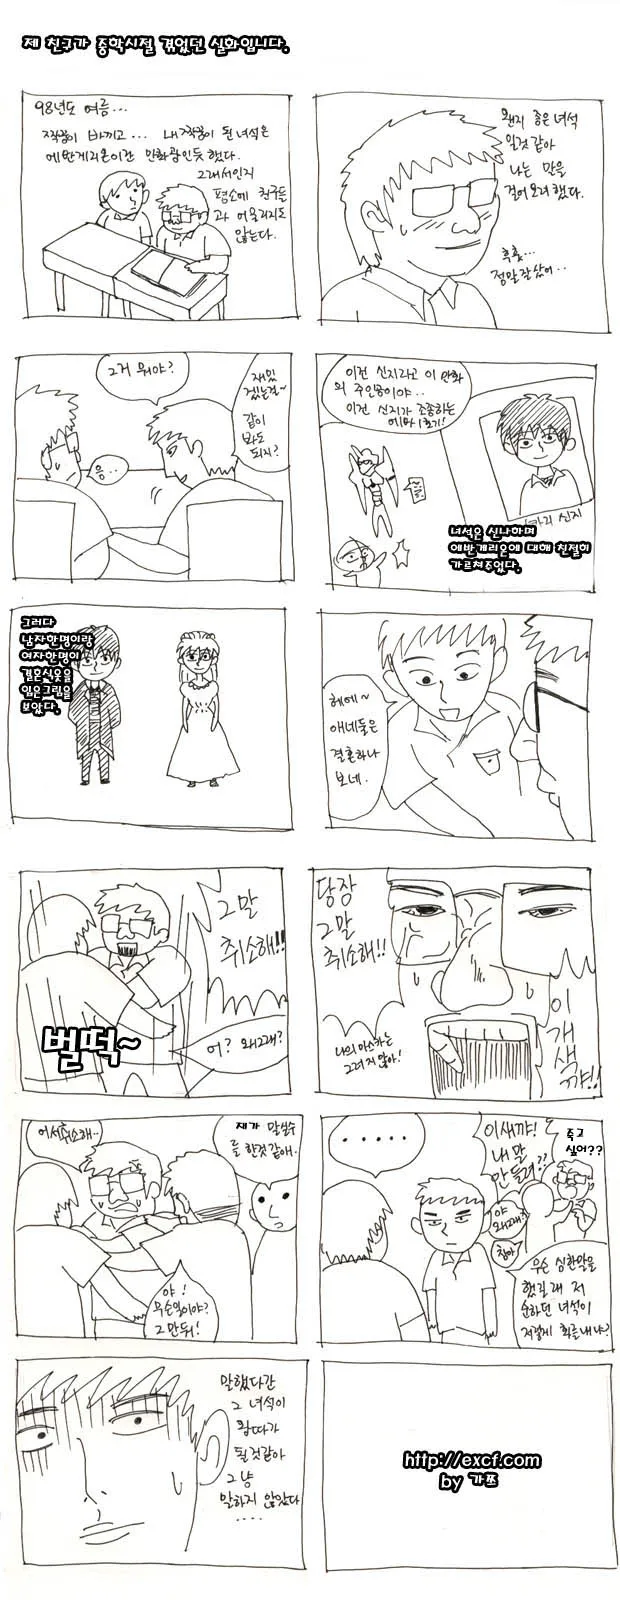 제 친구가 중학시절 겪었던 실화입니다.
98년도 여름...
짝꿍이 바끼고... 내 짝꿍이 된 녀석은
에반게리온이란 만화광인듯 했다.
그래서인지
평소에 친구들
과 어울리지도
않는다.
왠지 좋은 녀석
일것 같아
나는 말을
걸어 보려 했다.
흑흑...
정말 잘 샀어...
그거 뭐야?
재밌
겠는걸~
같이
봐도
되지?
응..
이건 신지라고 이 만화
의 주인공이야..
이건 신지가 조종하는
에바 1호기!
카리 신지
녀석은 신나하며
에반게리온에 대해 친절히
가르쳐주었다.
그러다
남자한명이랑
여자한명이
결혼식옷을
입은그림을
보았다.
헤에~
얘네들은
결혼하나
보네.
그말
취소해!!
어? 왜그래?
벌떡~
당장
그말
취소해!!
나의 아스카는
그러지 않아!
이
개
새
꺄!!
어서취소해..
쟤가 말실수
를 한것 같애.
야!
무슨일이야?
그만둬!
.....
이새꺄!
내 말
안들려??
죽고
싶어??
야
왜그래?
참아
무슨 심한말을
했길래 저
순하던 녀석이
저렇게 화를 내냐?
말했다간
그 녀석이
왕따가
될것같아
그냥
말하지 않았다
....
http://excf.com
by 갸포